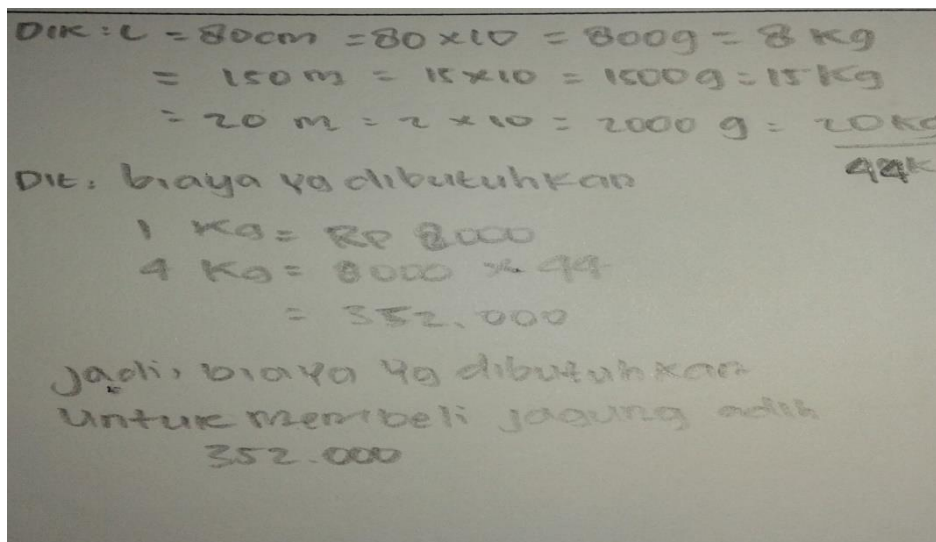 DIK : L = 80cm = 80 x 10 = 800g = 8 Kg
= 150 m = 15 x 10 = 1500 g = 15 Kg
= 20 m = 2 x 10 = 2000 g = 20 KG
44K
Dit : biaya yg dibutuhkan
1 KG = RP 8000
4 KG = 8000 x 44
= 352.000
Jadi, biaya yg dibutuhkan
untuk membeli jagung adlh
352.000